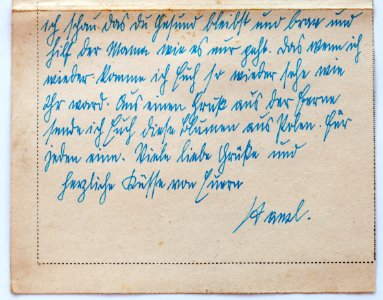 ich schau das du Gesund bleibst und brav und
hilf der Mama wie es nur geht. Das wenn ich
wieder komme ich Euch so wieder sehe wie
Ihr ward. Aus einen Gruß aus der Ferne
sende ich Euch diese Blumen aus Polen. Für
jeden eine. Viele liebe Grüße und
herzliche Küsse von Euern